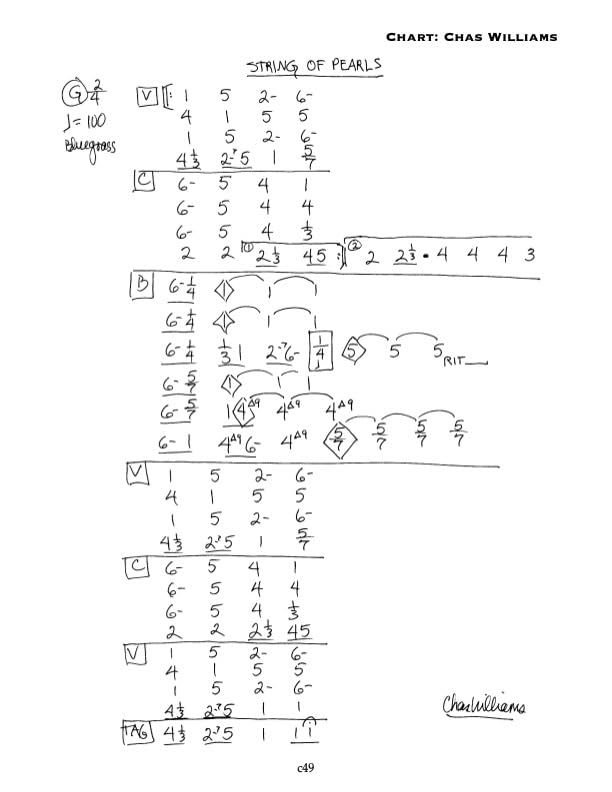 CHART: CHAS WILLIAMS
STRING OF PEARLS
G 2/4
♩=100
Bluegrass
V ‖: 1 5 2- 6-
4 1 5 5
1 5 2- 6-
4 1/3 2-7 5 1 5/7
C 6- 5 4 1
6- 5 4 4
6- 5 4 1/3
2 2 ① 2 1/3 45 :‖ ② 2 2 1/3 • 4 4 4 3
B 6- 1/4 1 1 1
6- 1/4 1 1 1
6- 1/4 1/3 1 2-7 6- 1/4 5 5 5 RIT
6- 5/7 1 1 1
6- 5/7 1 4Δ9 4Δ9 4Δ9
6- 1 4Δ9 6- 4Δ9 5/7 5/7 5/7 5/7
V 1 5 2- 6-
4 1 5 5
1 5 2- 6-
4 1/3 2-7 5 1 5/7
C 6- 5 4 1
6- 5 4 4
6- 5 4 1/3
2 2 2 1/3 45
V 1 5 2- 6-
4 1 5 5
1 5 2- 6-
4 1/3 2-7 5 1 1
TAG 4 1/3 2-7 5 1 1 1
Chas Williams
c49